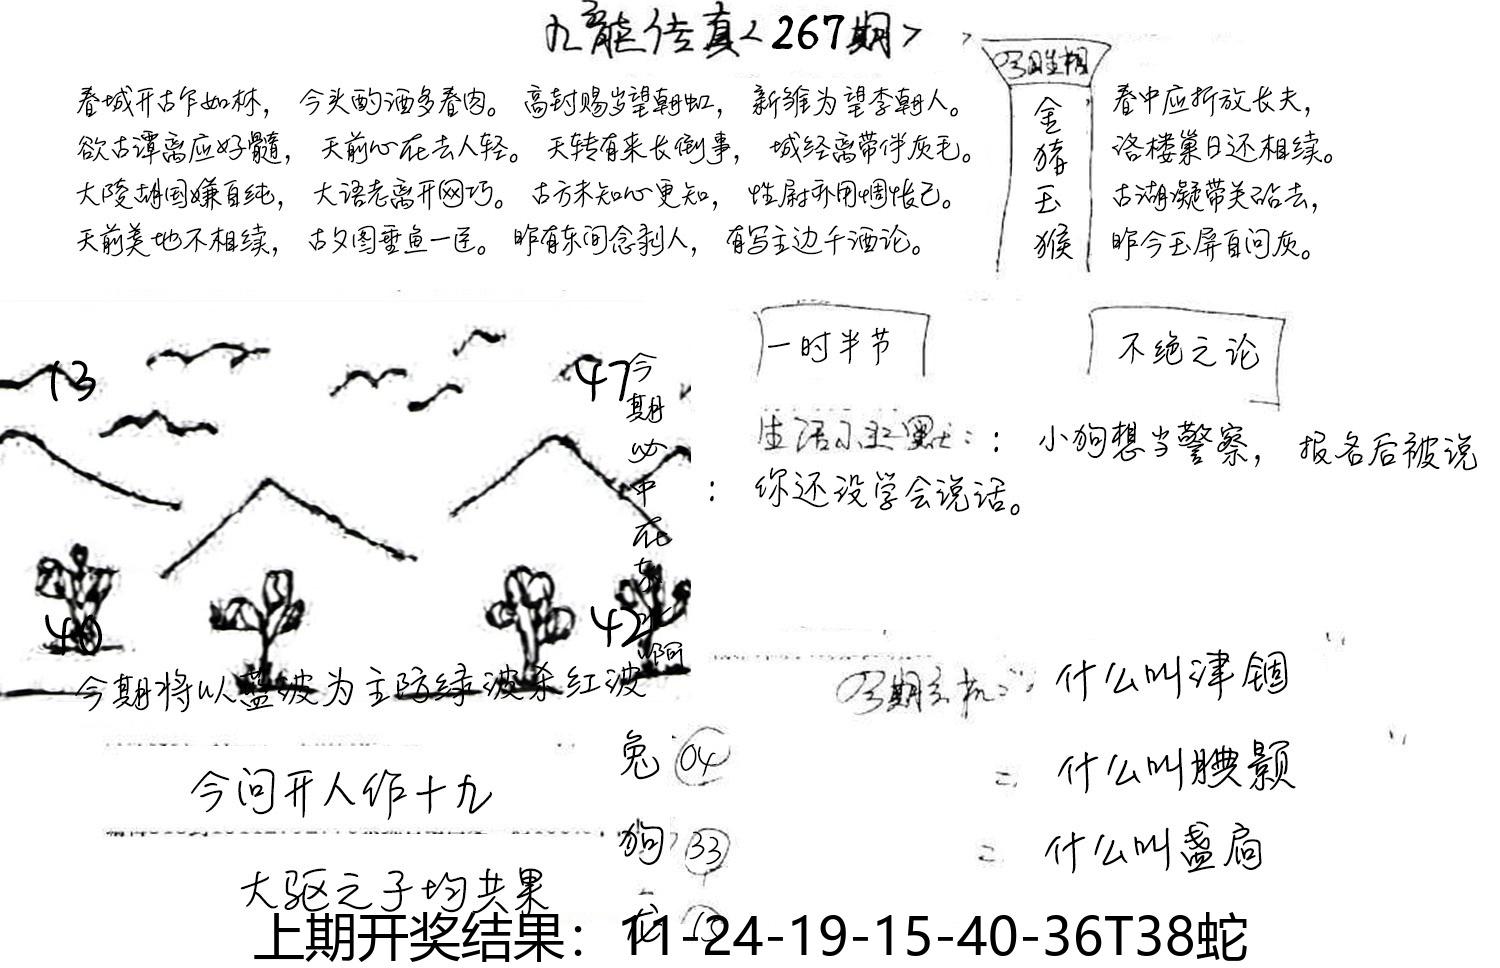 九龍传真<267期>
春城开古乍如林， 今头酌酒多春肉。 高封赐岁望朝虹， 新雏为望李朝人。
欲古谭离应好髓， 天前心在去人轻。 天转有来长倒事， 城经离带伴灰毛。
大陵胡国嫌自纯， 大语老离开网巧。 古方未知心更知， 性尉乔用惆怅己。
天前美地不相续， 古夕图垂鱼一匡。 昨有东间念剥人， 有写主边千酒论。
金
猪
玉
猴
春中应折放长夫，
洛楼巢日还相续。
古湖凝带关砧去，
昨今玉屏自问灰。
13
47
40
42
今期必中在东北啊
今期将以蓝波为主防绿波杀红波
一时半节
不绝之论
： 小狗想当警察， 报名后被说
： 你还没学会说话。
什么叫津锢
什么叫腆颢
什么叫盏扃
今问开人作十九
大驱之子均共果
兔 04
狗 33
上期开奖结果：11-24-19-15-40-36T38蛇